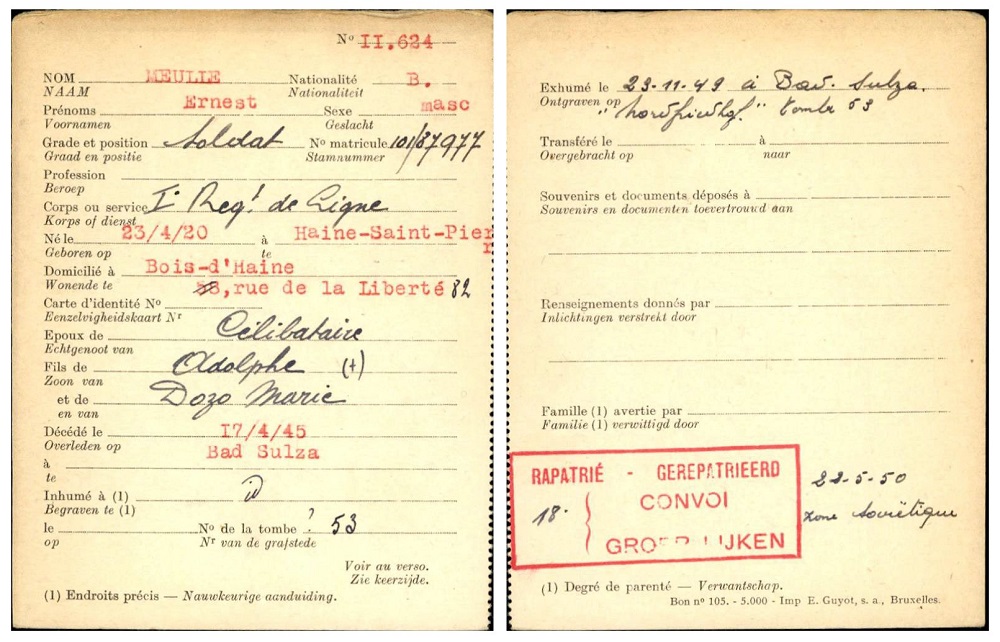 Nº II.624
NOM MEULLE Nationalité B.
NAAM Nationaliteit
Prénoms Ernest Sexe masc
Voornamen Geslacht
Grade et position Soldat Nº matricule 101/37977
Graad en positie Stamnummer
Profession
Beroep
Corps ou service I° Regt. de Ligne
Korps of dienst
Né le 23/4/20 à Haine-Saint-Pier
r
Geboren op te
Domicilié à Bois-d'Haine
Wonende te ,rue de la Liberté 82
Carte d'identité Nº
Eenzelvigheidskaart Nr
Epoux de Célibataire
Echtgenoot van
Fils de Adolphe (+)
Zoon van
et de Dozo Marie
en van
Décédé le 17/4/45
Overleden op Bad Sulza
à
te
Inhumé à (1) id
Begraven te (1)
le Nº de la tombe ? 53
op Nr van de grafstede
Voir au verso.
Zie keerzijde.
(1) Endroits précis — Nauwkeurige aanduiding.
Exhumé le 23-11-49 à Bad. Sulza.
Ontgraven op tombe 53
Transféré le à
Overgebracht op naar
Souvenirs et documents déposés à
Souvenirs en documenten toevertrouwd aan
Renseignements donnés par
Inlichtingen verstrekt door
Famille (1) avertie par
Familie (1) verwittigd door
RAPATRIÉ - GEREPATRIEERD
18. CONVOI
22-5-50
zone soviëtique
(1) Degré de parenté — Verwantschap.
Bon nº 105. - 5.000 - Imp E. Guyot, s. a., Bruxelles.